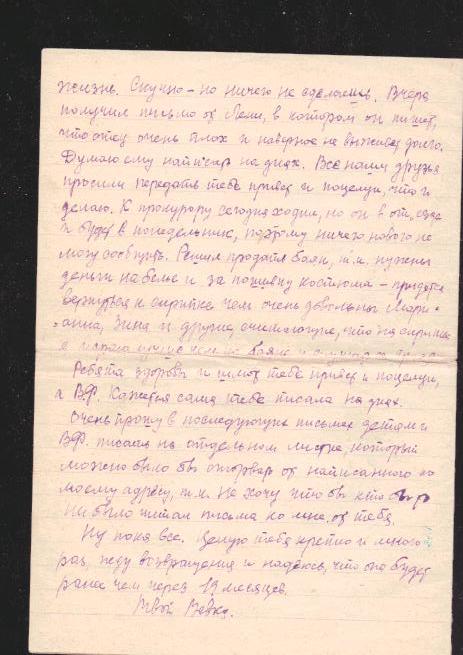 жизнь. Скучно – но ничего не сделаешь. Вчера
получил письмо от Лели, в котором он пишет,
что отец очень плох и наверное не выживет долго.
Думаю ему написать на днях. Все наши друзья
просили передать тебе привет и поцелуи, что и
делаю. К прокурору сегодня ходил, но он в от
и будет в понедельник, поэтому ничего нового не
могу сообщить. Решил продать баян, т.к. нужны
деньги на белье и за пошивку костюма – придется
вернуться к скрипке чем очень довольны Мари-
-анна, Зина и другие, считающие, что на скрипке
я играю лучше чем на баяне и
Ребята здоровы и шлют тебе привет и поцелуи,
а В.Ф. Кажется сама тебе писала на днях.
Очень прошу в последующих письмах детям и
В.Ф. писать на отдельном листке, который
можно было бы оторвать от написанного по
моему адресу, т.к. не хочу что бы кто бы то
ни было читал письма ко мне от тебя.
Ну пока все. Целую тебя крепко и много
раз, жду возвращения и надеюсь, что оно будет
ранее чем через 19 месяцев.
Твой Вовка.